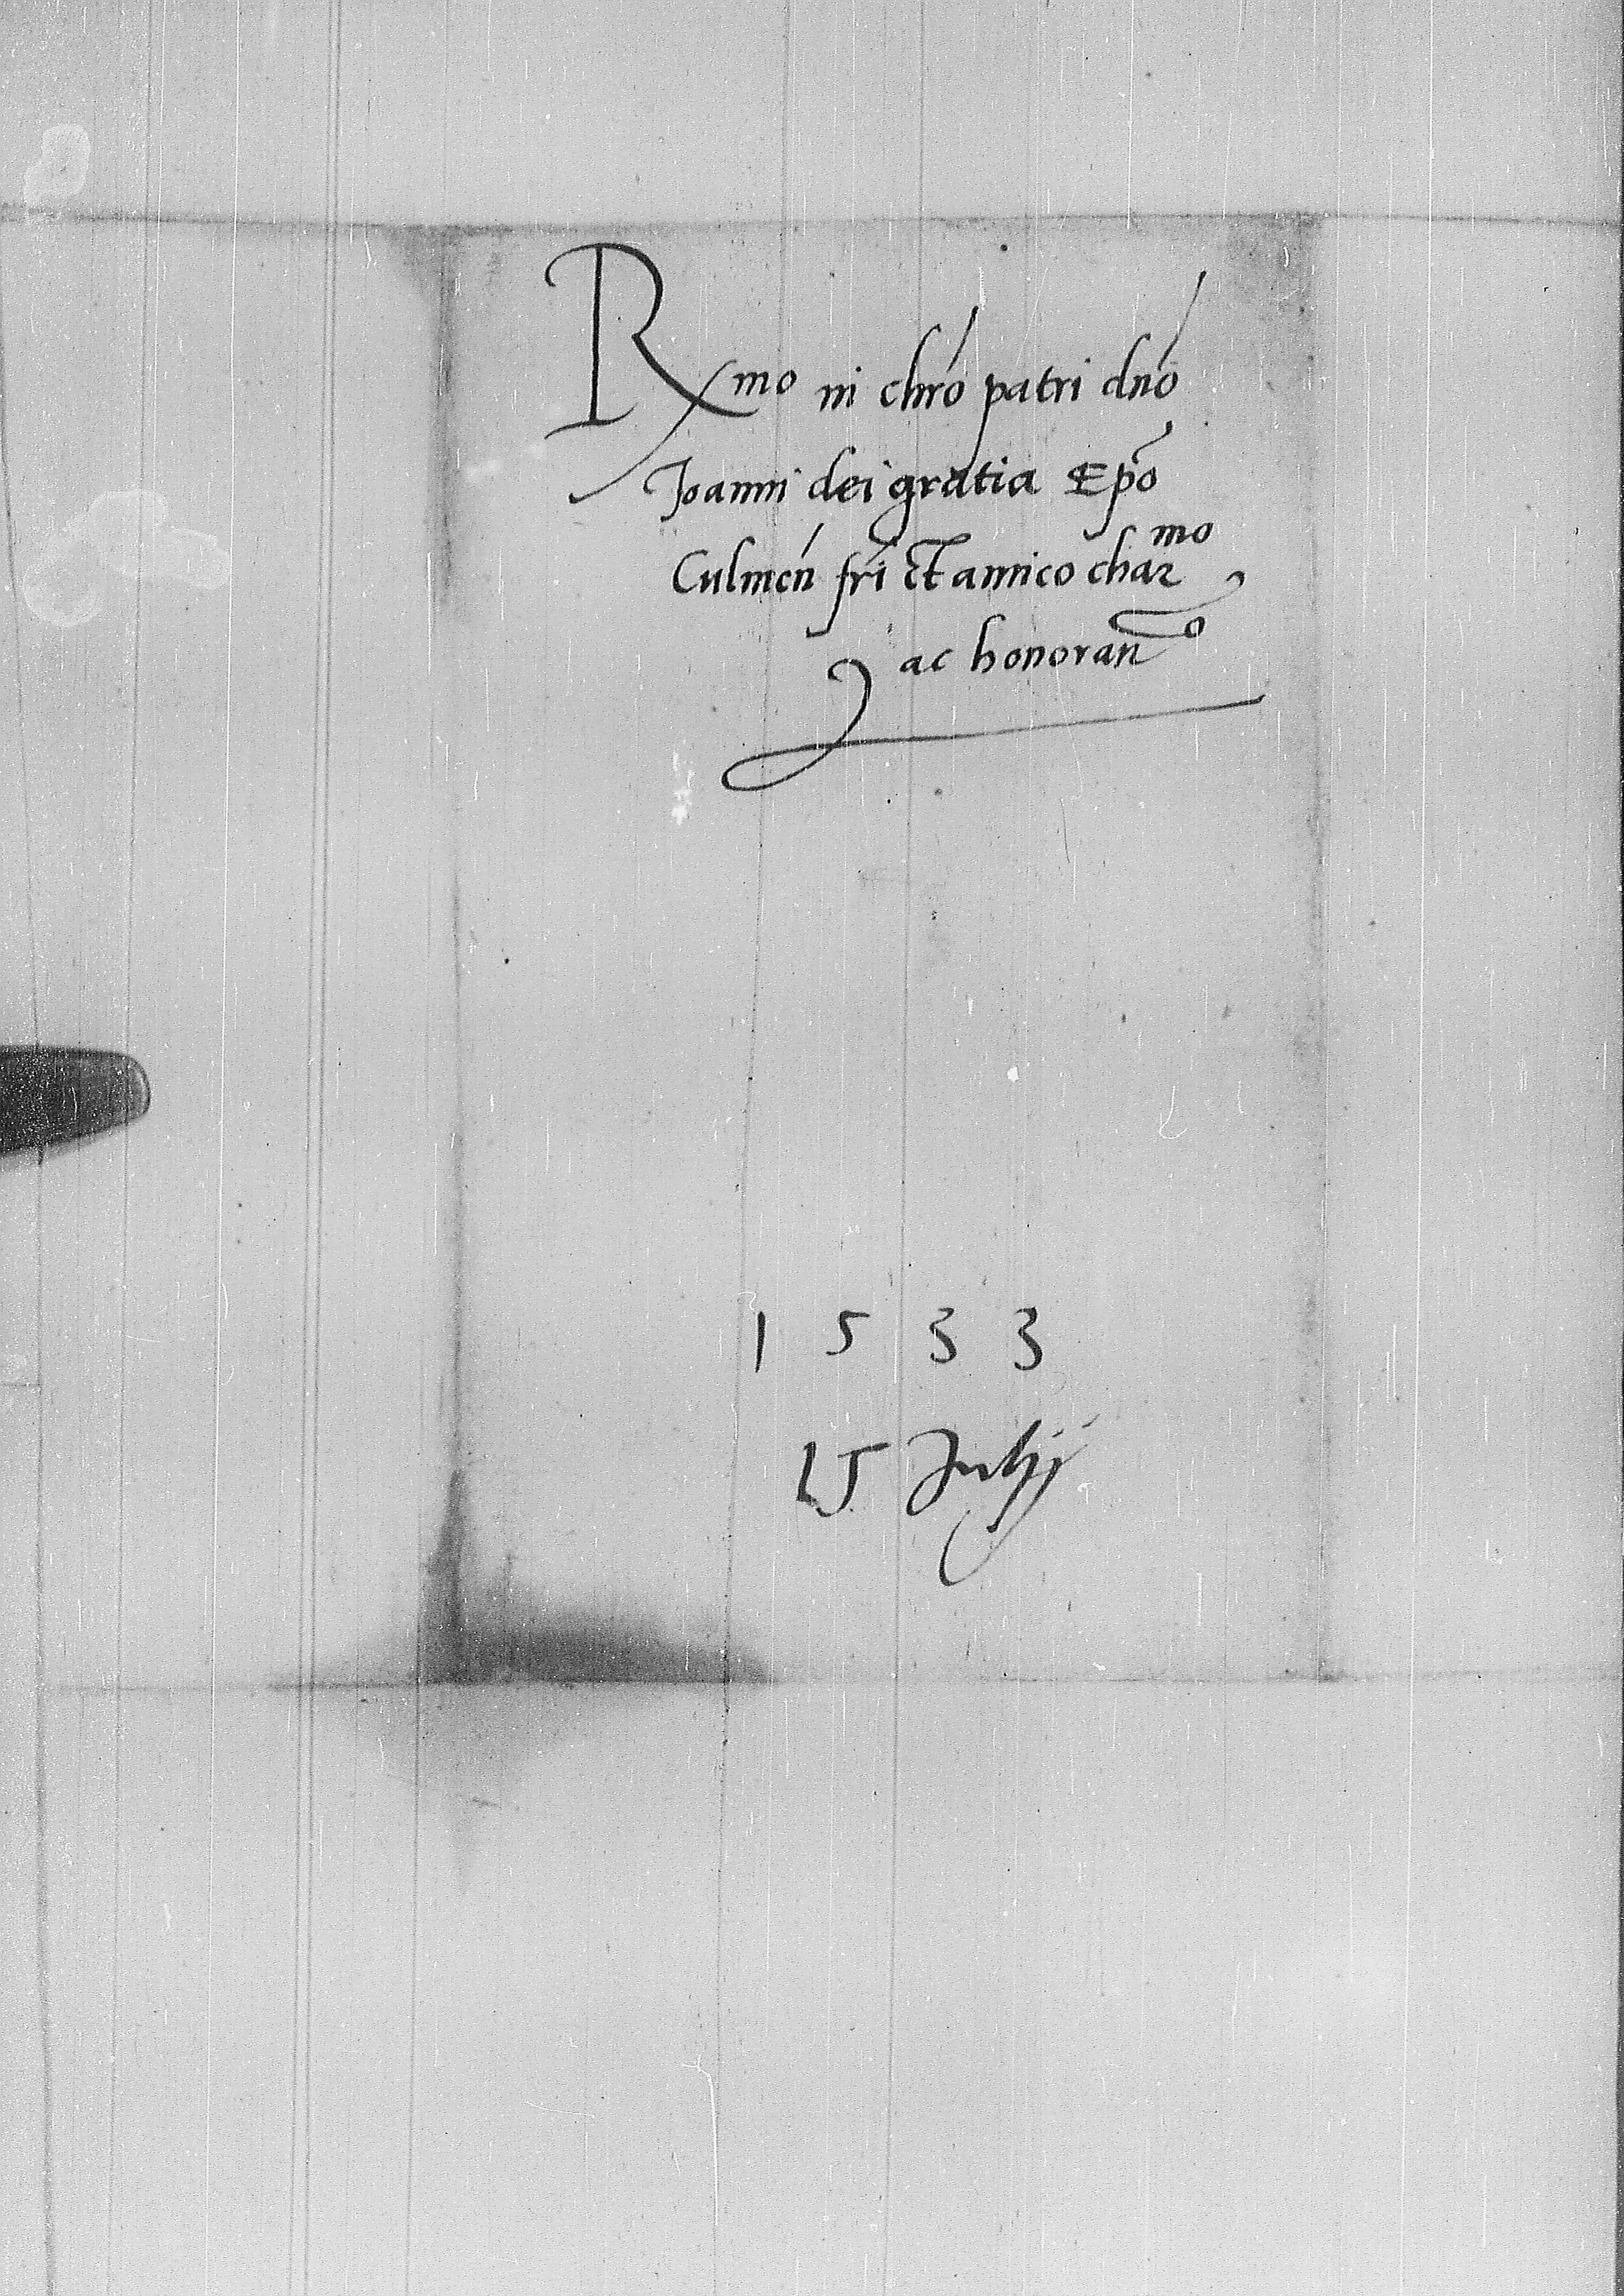 Rmo in chro patri dno
Joanni dei gratia Epo
Culmen fri et amico charmo
ac honorano
1 5 3 3
15 Julij